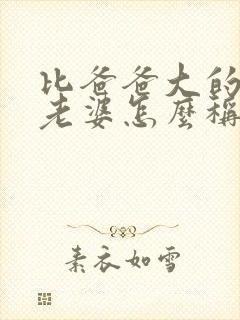 比爸爸大的
老婆怎麼稱
素衣如雪